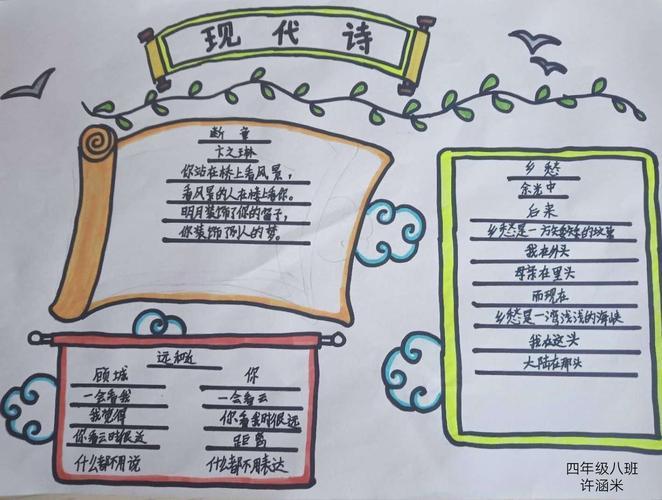 现代诗
断章
卞之琳
你站在桥上看风景，
看风景的人在楼上看你。
明月装饰了你的窗子，
你装饰了别人的梦。
乡愁
余光中
后来
乡愁是一方矮矮的坟墓
我在外头
母亲在里头
而现在
乡愁是一湾浅浅的海峡
我在这头
大陆在那头
远和近
顾城 你
一会看我 一会看云
我觉得 你看我时很远
你看云时很近 距离
什么都不用说 什么都不用表达
四年级八班
许涵米